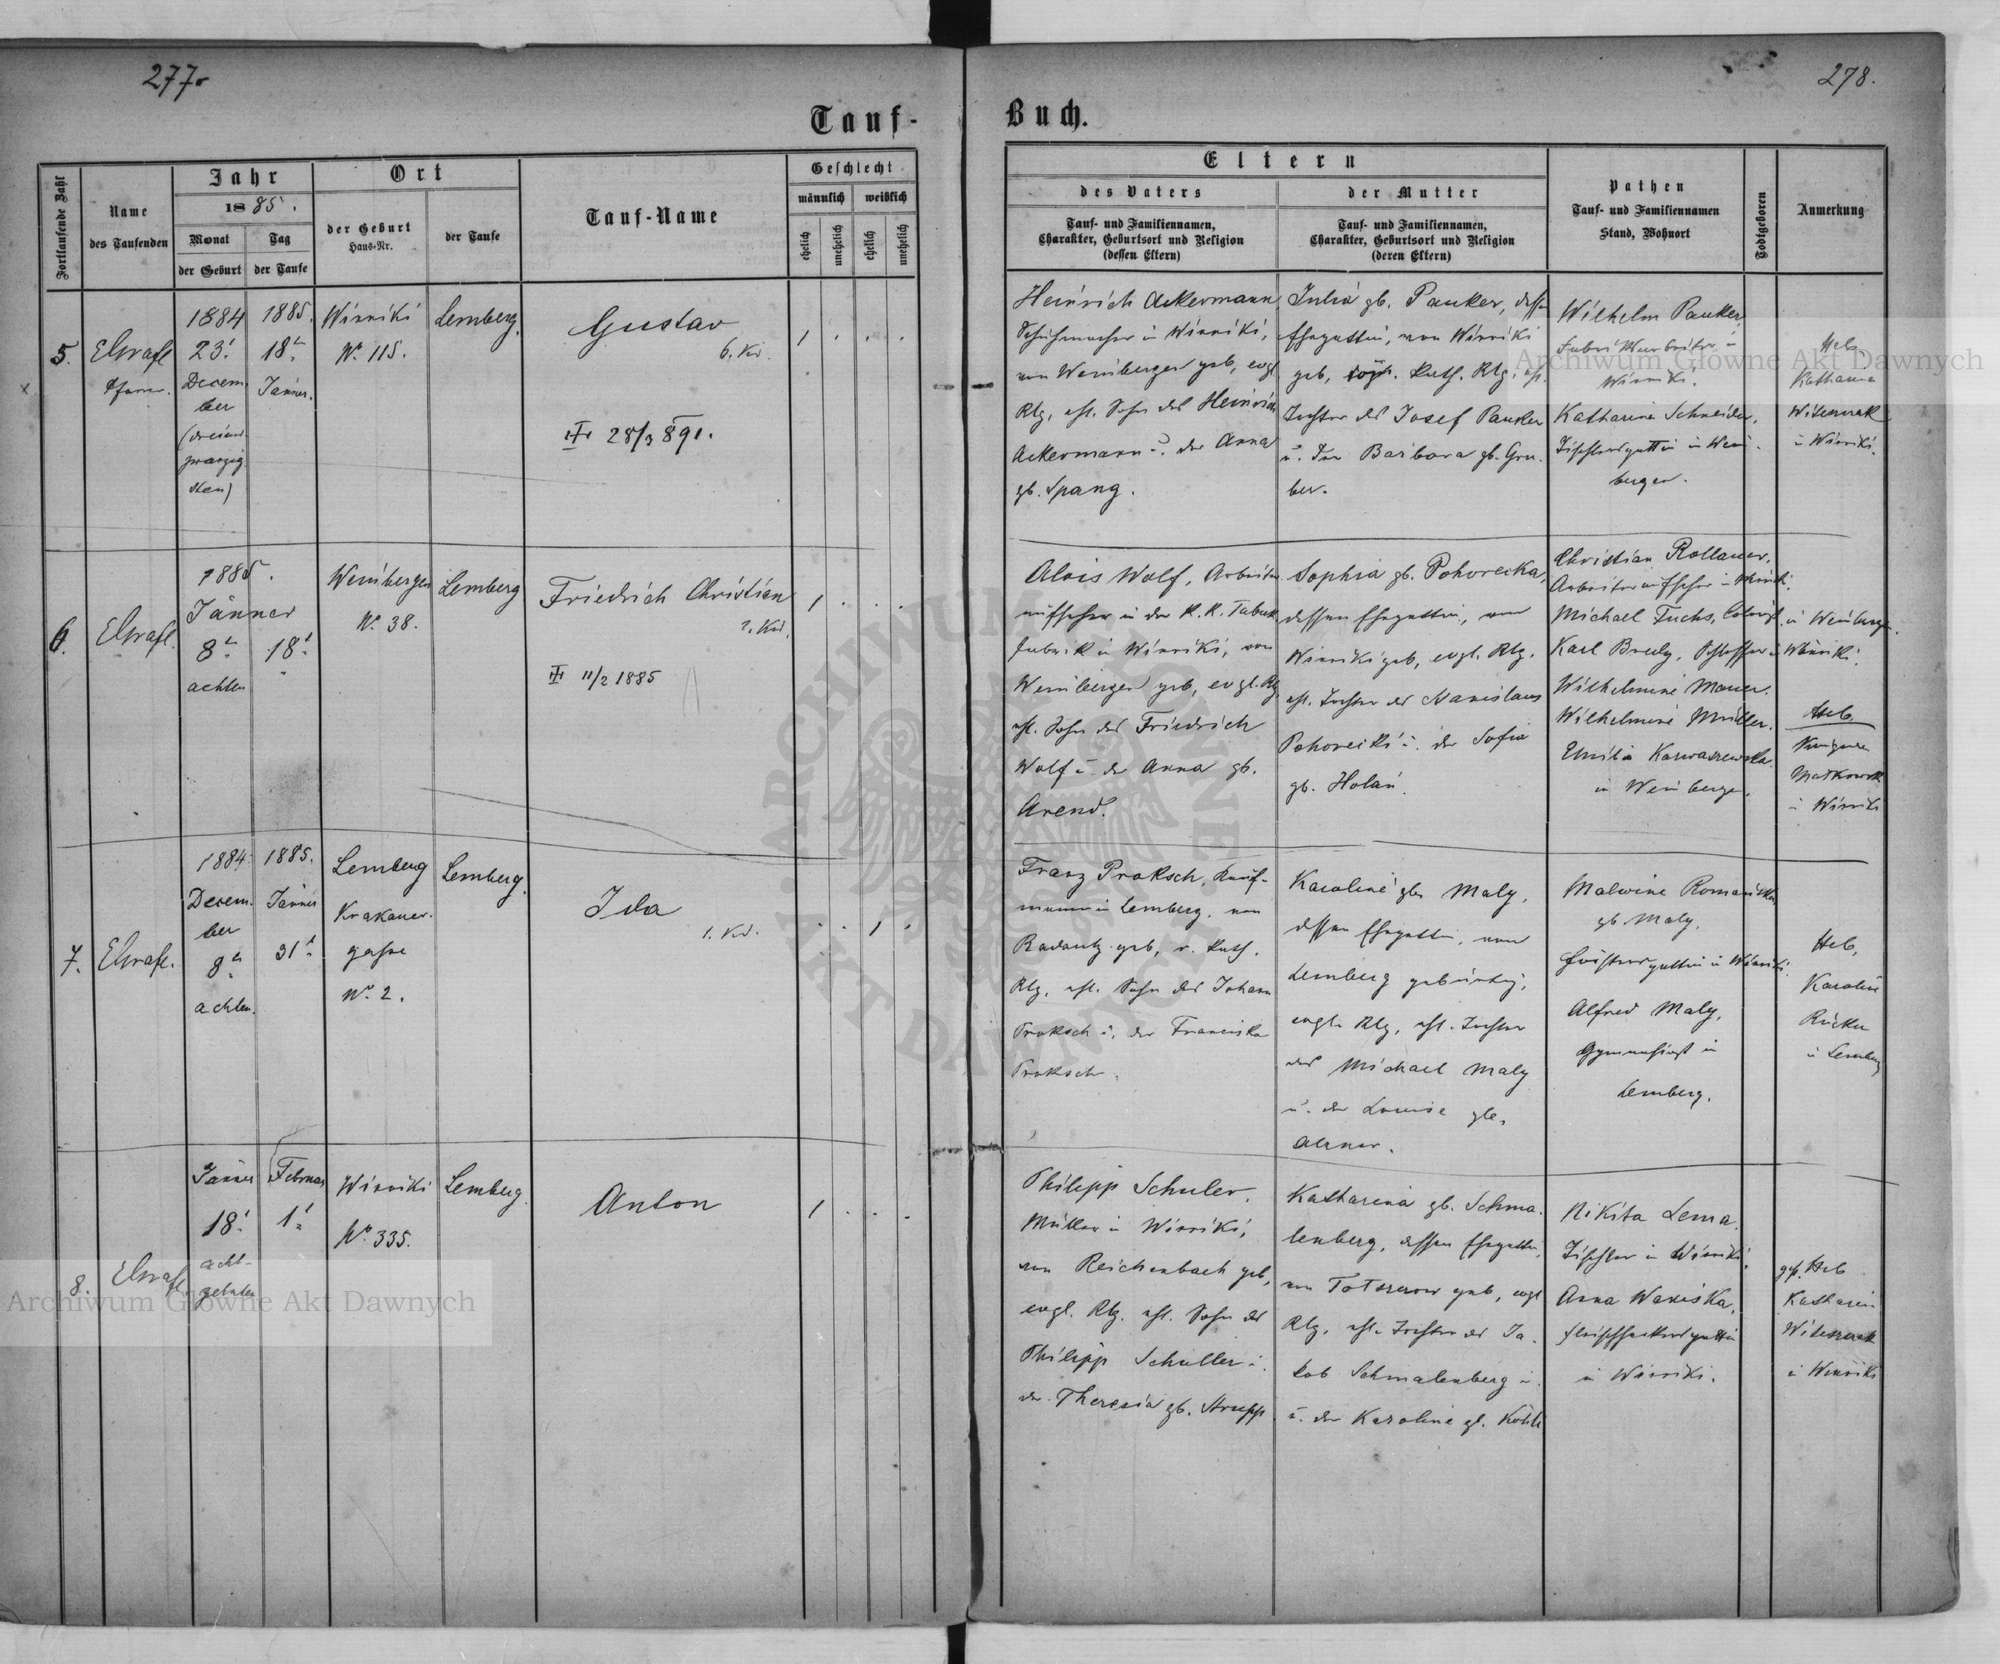 277.
278.
Tauf-
Buch.
Fortlaufende Zahl
Name
des Taufenden
Jahr
1885.
Monat
der Geburt
Tag
der Taufe
Ort
der Geburt
Haus-Nr.
der Taufe
Tauf-Name
Geschlecht
männlich
weiblich
ehelich
unehelich
ehelich
unehelich
Eltern
des Vaters
Tauf- und Familiennamen,
Charakter, Geburtsort und Religion
(dessen Eltern)
der Mutter
Tauf- und Familiennamen,
Charakter, Geburtsort und Religion
(deren Eltern)
Pathen
Tauf- und Familiennamen
Stand, Wohnort
Todtgeboren
Anmerkung
5.
Pfarrer.
1884
23.
Decem
ber
(dreiund
zwanzig
sten)
1885.
18.
Jänner.
Winniki
No. 115.
Lemberg.
Gustav
6. Kd.
28/3 891.
Heinrich Ackermann,
Schuhmacher in Winniki,
von Weinbergen geb, evgl
Rlg, ehl. Sohn des Heinrich
Ackermann u. der Anna
gb. Spang.
Julia gb. Pauker, dessen
Ehegattin, von Winniki
geb, kath. Rlg. ehl.
Tochter des Josef Pauker
u. der Barbara gb. Gru-
ber.
Wilhelm Pauker,
Winniki.
Katharina Schneider,
Tischlersgattin in Wein-
bergen.
Heb.
Katharina
in Winniki.
6.
1885.
Jänner
8.
achten
18.
Weinbergen
No. 38.
Lemberg
Friedrich Christian
11/2 1885
Alois Wolf, Arbeiter
aufseher in der k. k. Tabak
fabrik in Winniki, von
Weinbergen geb, evgl. Rlg
ehl. Sohn des Friedrich
Wolf u. der Anna gb.
Arend.
Sophia gb. Pohorecka,
dessen Ehegattin, von
Winniki geb, evgl. Rlg.
ehl. Tochter des Stanislaus
Pohorecki u. der Sofia
gb. Holan.
Christian Rollauer,
Arbeiteraufseher in Winniki.
Michael Fuchs, Colonist in Weinbergen.
Karl Schlosser in Winniki.
Wilhelmine Mauer.
Wilhelmine Müller.
Emilia
in Weinbergen.
Heb.
in Winniki
7.
1884.
Decem
ber
8.
achten.
1885.
Jänner
31.
Lemberg
Krakauer-
gasse
No. 2.
Lemberg.
Ida
1. Kd.
Franz Proksch, Kauf-
mann in Lemberg, von
Radautz geb, r. kath.
Rlg, ehl. Sohn des Johann
Proksch u. der Franciska
Proksch.
Karoline gb. Maly,
dessen Ehegattin, von
Lemberg gebürtig,
evgl. Rlg, ehl. Tochter
des Michael Maly
u. der Louise gb.
Malwine
gb. Maly,
Försters gattin in Winniki.
Alfred Maly,
Gymnasiast in
Lemberg.
Heb,
Karoline
in Lemberg
8.
Jänner
18.
acht-
zehnten
Februar
1.
Winniki
No. 335.
Lemberg.
Anton
Philipp Schuler,
Müller in Winniki,
von Reichenbach geb,
evgl. Rlg. ehl. Sohn des
Philipp Schuller u.
der Theresia gb.
Katharina gb. Schma-
lenberg, dessen Ehegattin,
von geb, evgl
Rlg, ehl. Tochter des Ja-
kob Schmalenberg u.
u. der Karoline gb.
Nikita Lema,
Tischler in Winniki.
Anna
in Winniki.
gep. Heb
Katharin
in Winniki
Archiwum Główne Akt Dawnych
Archiwum Główne Akt Dawnych
ARCHIWUM GŁÓWNE AKT DAWNYCH